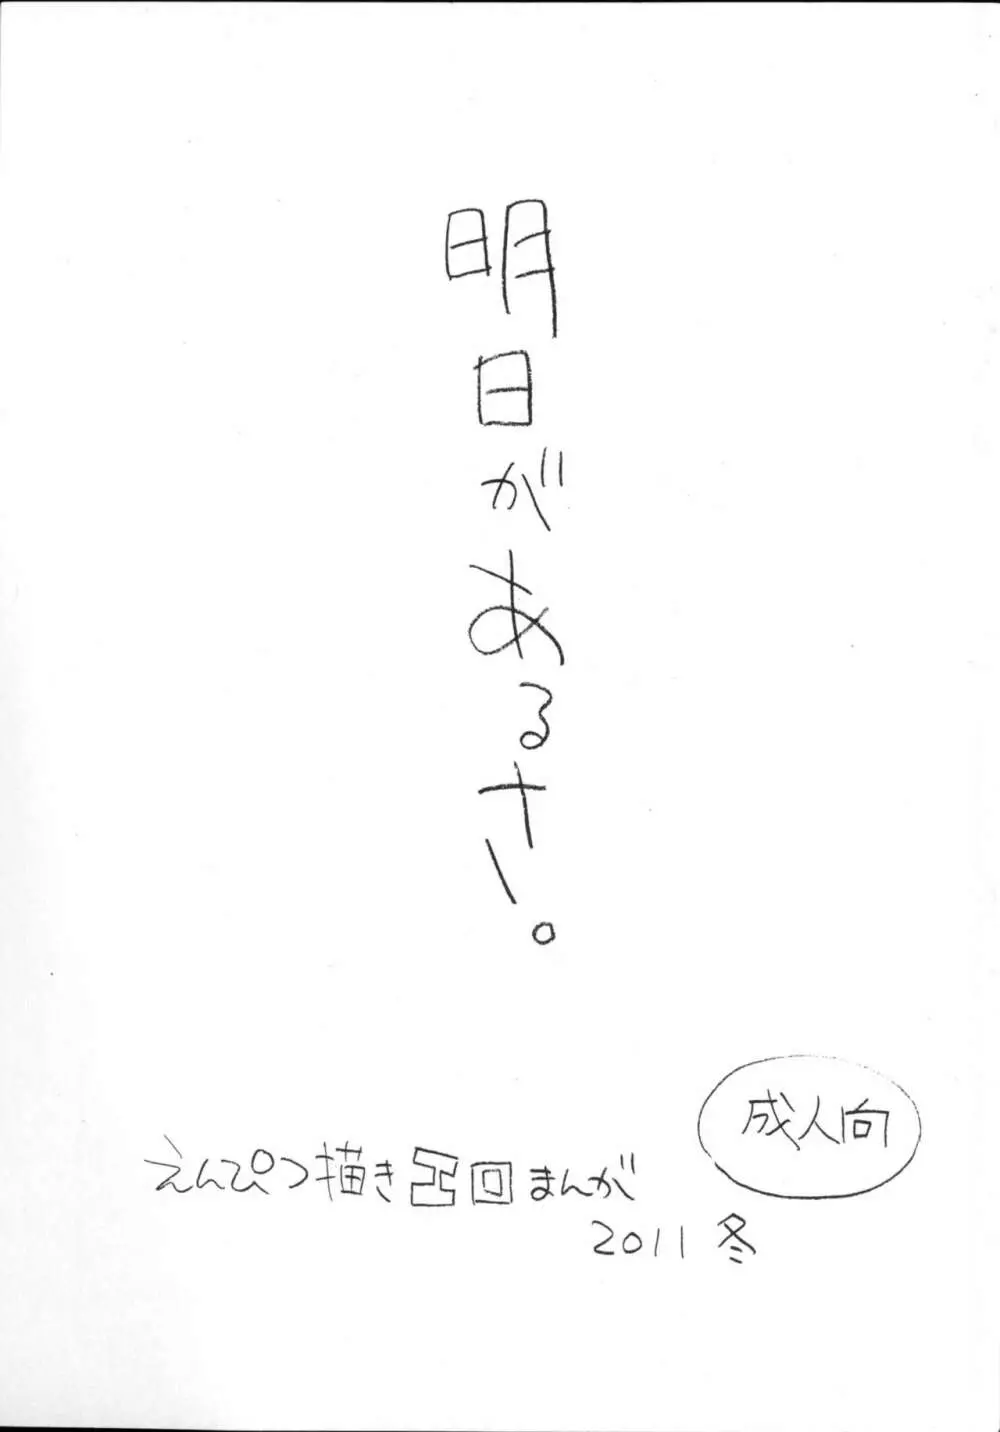 明日があるさ。
成人向
えんぴつ描きエロまんが
2011 冬